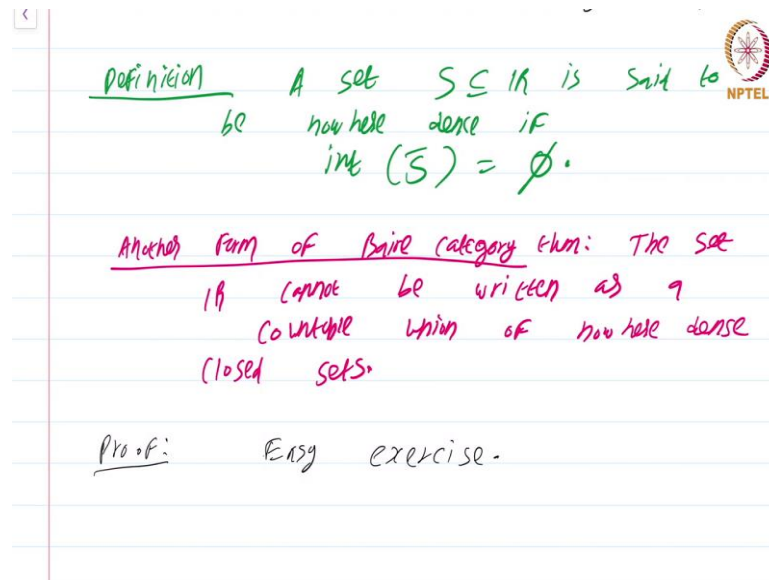 Definition A set S ⊆ ℝ is said to
NPTEL
be nowhere dense if
int (S̅) = ∅.
Another Form of Baire Category thm: The set
ℝ cannot be written as a
countable union of nowhere dense
closed sets.
Proof: Easy exercise.